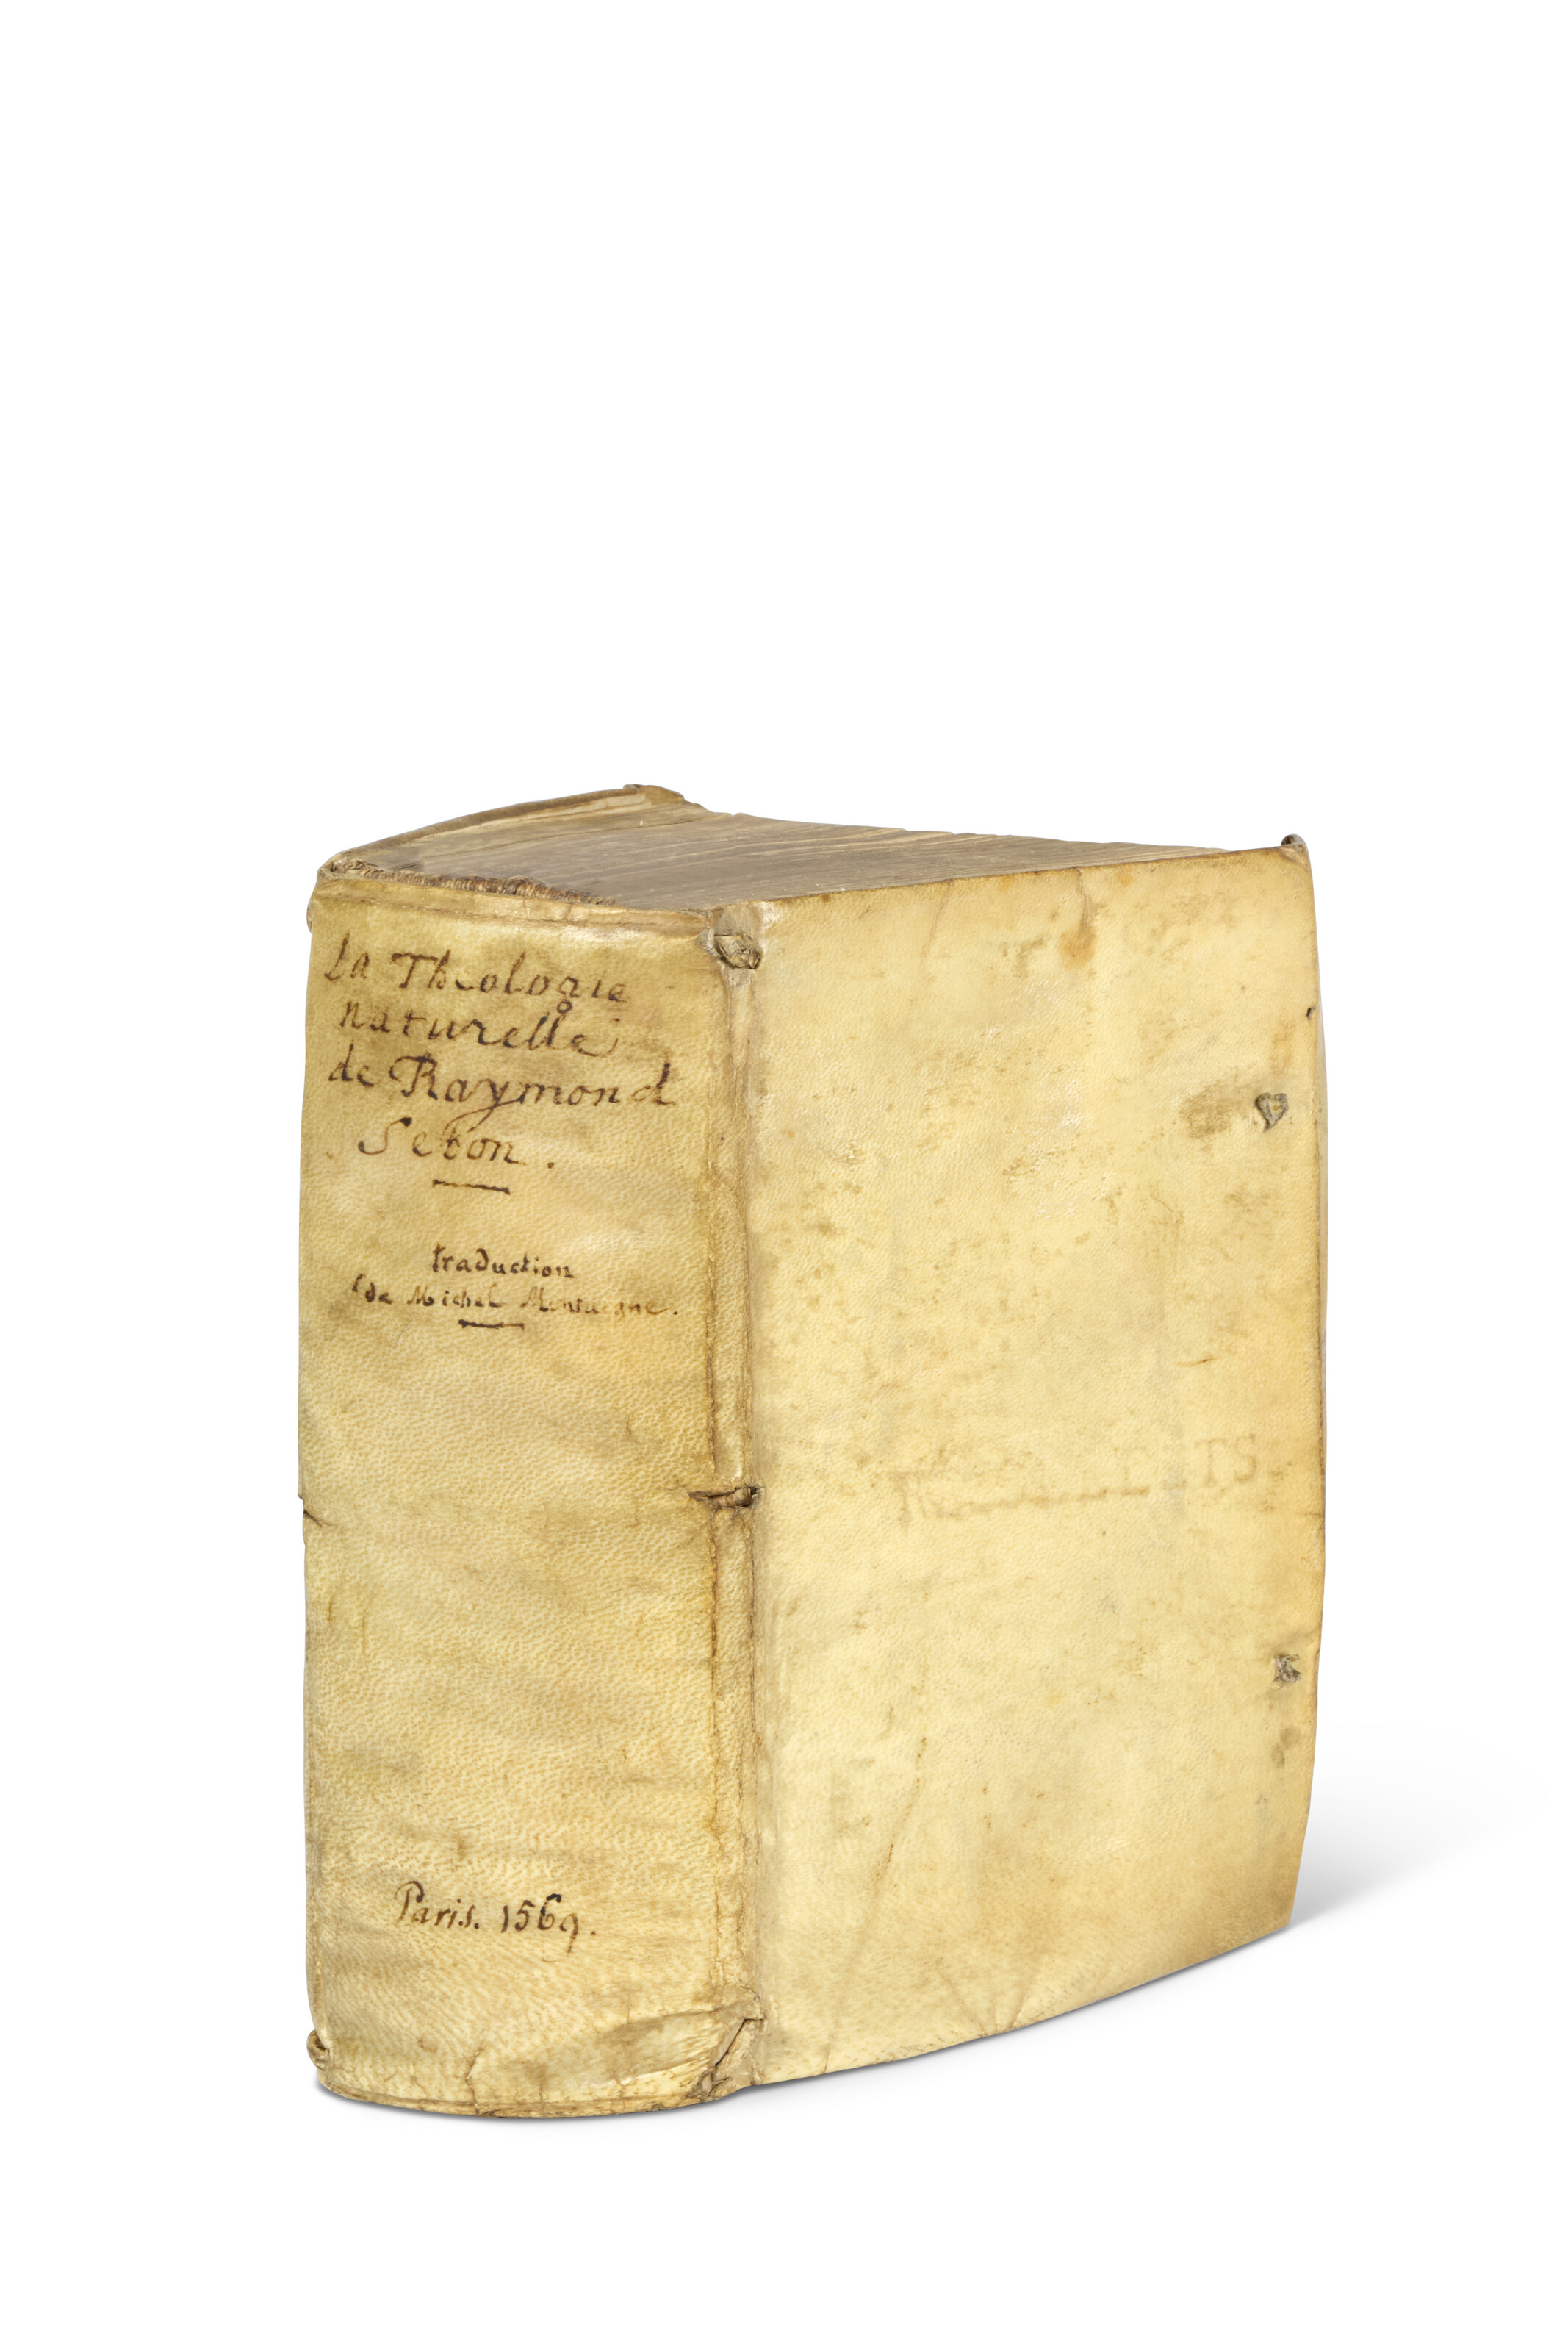 La Theologie
naturelle
de Raymond
Sebon.
traduction
de Michel Montaigne.
Paris. 1569.